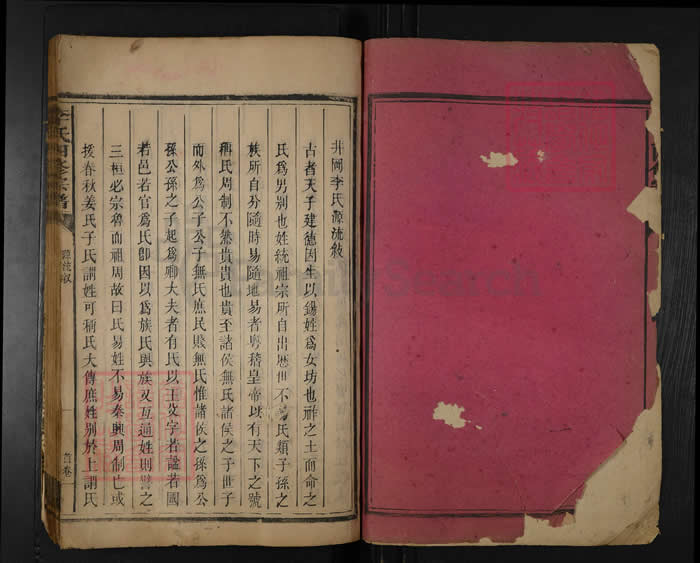 井岡李氏源流敘
古者天子建德因生以錫姓為女坊也胙之土而命之
氏為男別也姓統祖宗所自出歷世不氏類子孫之
族所自分隨時易隨地易者粵稽皇帝以有天下之號
稱氏周制不然貴貴也貴至諸侯無氏諸侯之子世子
而外為公子公子無氏庶民賤無氏惟諸侯之孫為公
孫公孫之子起為卿大夫者有氏以王父字若諡若國
若邑若官為氏卽因以為族氏與族又互通姓則譬之
三桓必宗魯而祖周故曰氏易姓不易秦興周制亡或
援春秋姜氏子氏謂姓可稱氏大傳庶姓別於上謂氏
李氏四修宗譜
源流敘
首卷
FamilySearch